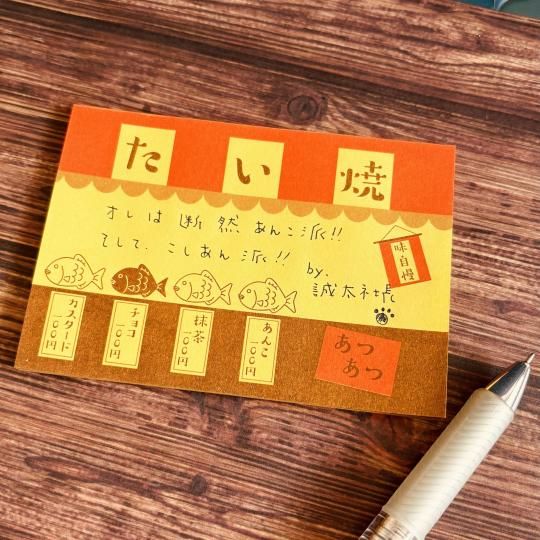 たい焼
オレは断然、あんこ派!!
そして、こしあん派!!
by.
誠太社長
味自慢
カスタード 一〇〇円
チョコ 一〇〇円
抹茶 一〇〇円
あんこ 一〇〇円
あつ
あつ